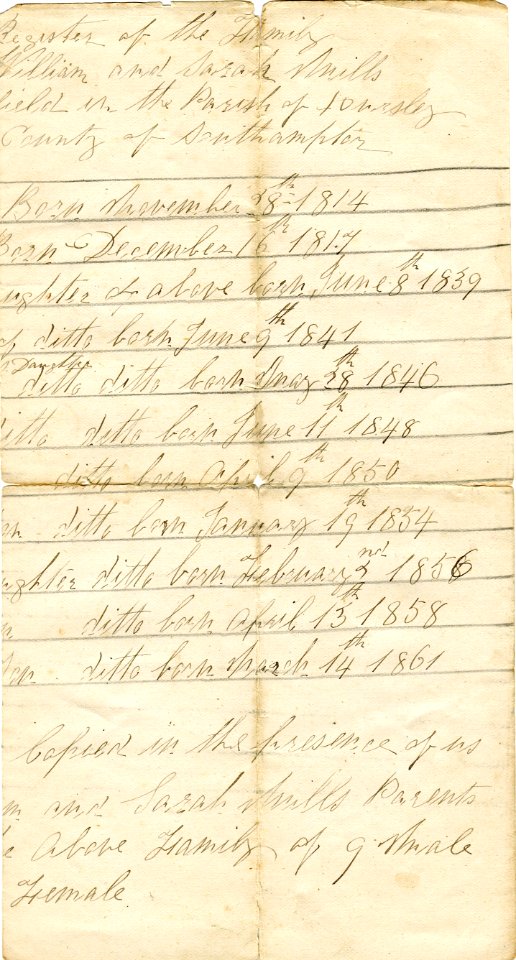 Register of the Family
William and Sarah Mills
field in the Parish of Hursley
County of Southampton
Born November 28th 1814
Born December 16th 1817
ughter of above born June 8th 1839
ditto born June 9th 1841
Daughter
ditto ditto born May 28th 1846
ditto ditto born June 11th 1848
ditto born April 9th 1850
on ditto born January 19th 1854
ughter ditto born February 2nd 1856
n ditto born April 13th 1858
ditto born March 14th 1861
Copied in the presence of us
m and Sarah Mills Parents
e Above Family of 9 Male
Female